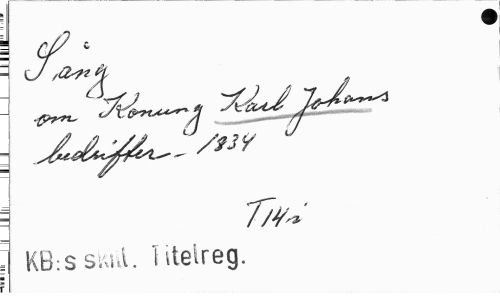 Sång
om Konung Karl Johans
bedrifter - 1834
T14:2
KB:s skill. Titelreg.